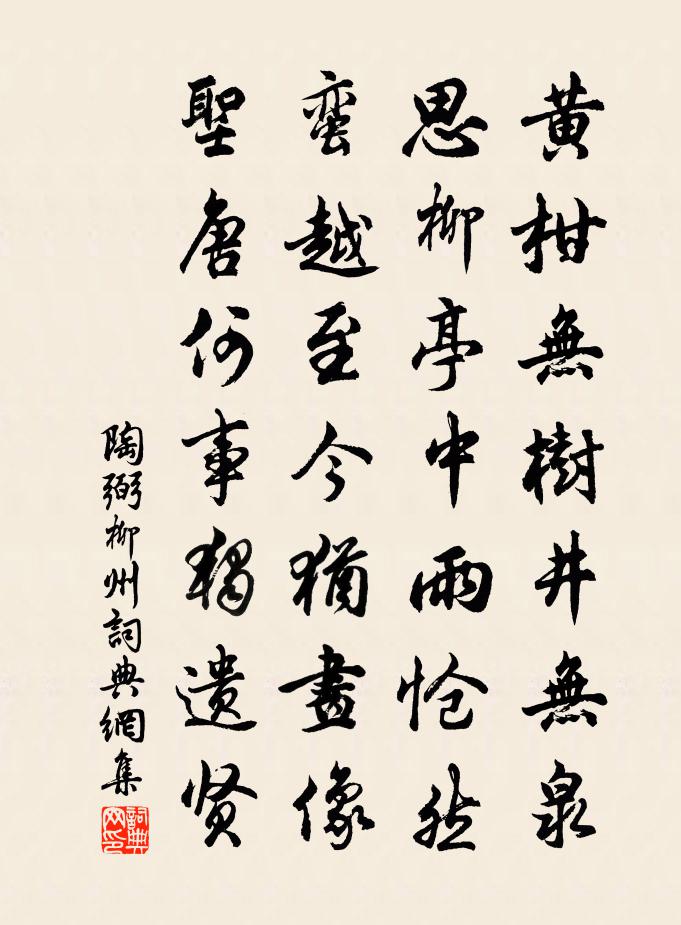 黄柑無樹井無泉
思柳亭中兩愴然
蠻越至今猶畫像
聖唐何事獨遺贤
陶弼柳州詞典網集
詞典網印